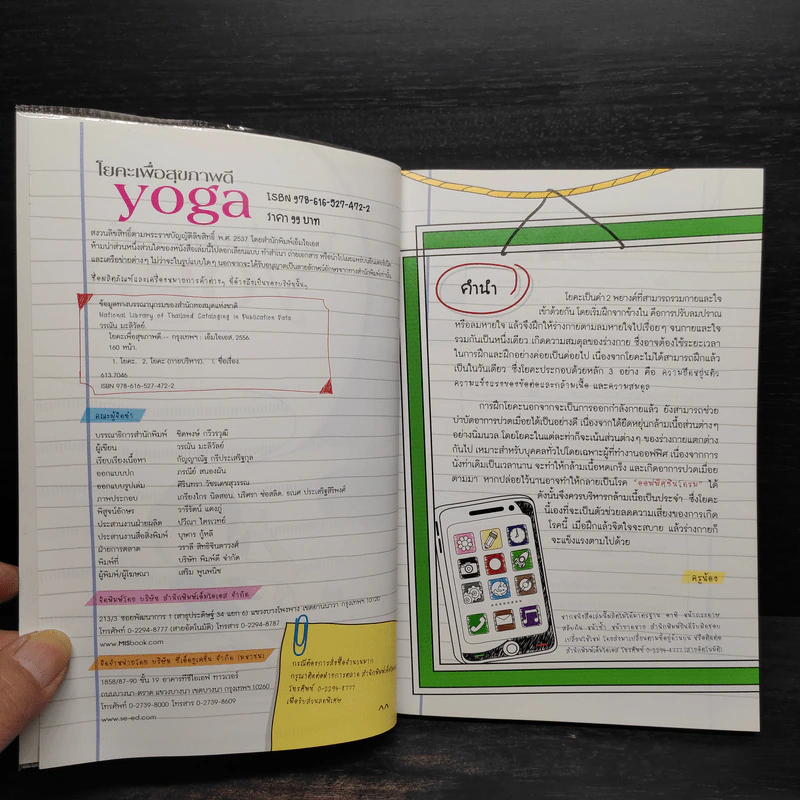 โยคะเพื่อสุขภาพดี
yoga
ISBN 978-616-527-472-2
ราคา 99 บาท
สงวนลิขสิทธิ์ตามพระราชบัญญัติลิขสิทธิ์ พ.ศ. 2537 โดยสำนักพิมพ์เอ็มไอเอส
ห้ามนำส่วนหนึ่งส่วนใดของหนังสือเล่มนี้ไปลอกเลียนแบบ ทำสำเนา ถ่ายเอกสาร หรือนำไปเผยแพร่บนอินเตอร์เน็ต
และเครือข่ายต่างๆ ไม่ว่าจะในรูปแบบใดๆ นอกจากจะได้รับอนุญาตเป็นลายลักษณ์อักษรจากทางสำนักพิมพ์เท่านั้น
ชื่อผลิตภัณฑ์และเครื่องหมายการค้าต่างๆ ที่อ้างถึงเป็นของบริษัทนั้นๆ
ข้อมูลทางบรรณานุกรมของสำนักหอสมุดแห่งชาติ
National Library of Thailand Cataloging in Publication Data
วรณัน มะลิวัลย์.
โยคะเพื่อสุขภาพดี.-- กรุงเทพฯ : เอ็มไอเอส, 2556.
160 หน้า.
1. โยคะ. 2. โยคะ (กายบริหาร). I. ชื่อเรื่อง.
613.7046
ISBN 978-616-527-472-2
คณะผู้จัดทำ
บรรณาธิการสำนักพิมพ์ ชิดพงษ์ กวีวรวุฒิ
ผู้เขียน วรณัน มะลิวัลย์
เรียบเรียงเนื้อหา กัญญาณัฐ กรีประเสริฐกุล
ออกแบบปก ภรณีย์ สนองผัน
ออกแบบรูปเล่ม ศิรินทรา วัชรเดนสุวรรณ
ภาพประกอบ เกรียงไกร นิลสอน, ปริศรา ช่อสลิด, ธเนศ ประเสริฐสิริพงศ์
พิสูจน์อักษร วารีรัตน์ แตงภู่
ประสานงานฝ่ายผลิต ปวีณา ไตรเวทย์
ประสานงานสื่อสิ่งพิมพ์ บุษกร กู้หลี
ฝ่ายการตลาด วราลี สิทธิจินดาวงศ์
พิมพ์ที่ บริษัท พิมพ์ดี จำกัด
ผู้พิมพ์/ผู้โฆษณา เสริม พูนพนิช
จัดพิมพ์โดย บริษัท สำนักพิมพ์เอ็มไอเอส จำกัด
213/3 ซอยพัฒนาการ 1 (สาธุประดิษฐ์ 34 แยก 6) แขวงบางโพงพาง เขตยานนาวา กรุงเทพฯ 10120
โทรศัพท์ 0-2294-8777 (สายอัตโนมัติ) โทรสาร 0-2294-8787
www.MISbook.com
จัดจำหน่ายโดย บริษัท ซีเอ็ดยูเคชั่น จำกัด (มหาชน)
1858/87-90 ชั้น 19 อาคารทีซีไอเอฟ ทาวเวอร์
ถนนบางนา-ตราด แขวงบางนา เขตบางนา กรุงเทพฯ 10260
โทรศัพท์ 0-2739-8000 โทรสาร 0-2739-8609
www.se-ed.com
กรณีต้องการสั่งซื้อจำนวนมาก
กรุณาติดต่อฝ่ายการตลาด สำนักพิมพ์
โทรศัพท์ 0-2294-8777
เพื่อรับส่วนลดพิเศษ
^^
คำนำ
โยคะเป็นคำ 2 พยางค์ที่สามารถรวมกายและใจ
เข้าด้วยกัน โดยเริ่มฝึกจากข้างใน คือการปรับลมปราณ
หรือลมหายใจ แล้วจึงฝึกให้ร่างกายตามลมหายใจไปเรื่อยๆ จนกายและใจ
รวมกันเป็นหนึ่งเดียว เกิดความสมดุลของร่างกาย ซึ่งอาจต้องใช้ระยะเวลา
ในการฝึกและฝึกอย่างค่อยเป็นค่อยไป เนื่องจากโยคะไม่ได้สามารถฝึกแล้ว
เป็นในวันเดียว ซึ่งโยคะประกอบด้วยหลัก 3 อย่าง คือ ความยืดหยุ่นตัว
ความแข็งแรงของข้อต่อและกล้ามเนื้อ และความสมดุล
การฝึกโยคะนอกจากจะเป็นการออกกำลังกายแล้ว ยังสามารถช่วย
บำบัดอาการปวดเมื่อยได้เป็นอย่างดี เนื่องจากได้ยืดหยุ่นกล้ามเนื้อส่วนต่างๆ
อย่างนิ่มนวล โดยโยคะในแต่ละท่าก็จะเน้นส่วนต่างๆ ของร่างกายแตกต่าง
กันไป เหมาะสำหรับบุคคลทั่วไปโดยเฉพาะผู้ที่ทำงานออฟฟิศ เนื่องจากการ
นั่งท่าเดิมเป็นเวลานาน จะทำให้กล้ามเนื้อหดเกร็ง และเกิดอาการปวดเมื่อย
ตามมา หากปล่อยไว้นานอาจทำให้กลายเป็นโรค "ออฟฟิศซินโดรม" ได้
ดังนั้นจึงควรบริหารกล้ามเนื้อเป็นประจำ ซึ่งโยคะ
นี้เองที่จะเป็นตัวช่วยลดความเสี่ยงของการเกิด
โรคนี้ เมื่อฝึกแล้วจิตใจจะสบาย แล้วร่างกายก็
จะแข็งแรงตามไปด้วย
ครูน้อง
หากหนังสือเล่มนี้ผลิตไม่ได้มาตรฐาน อาทิ หน้ากระดาษ